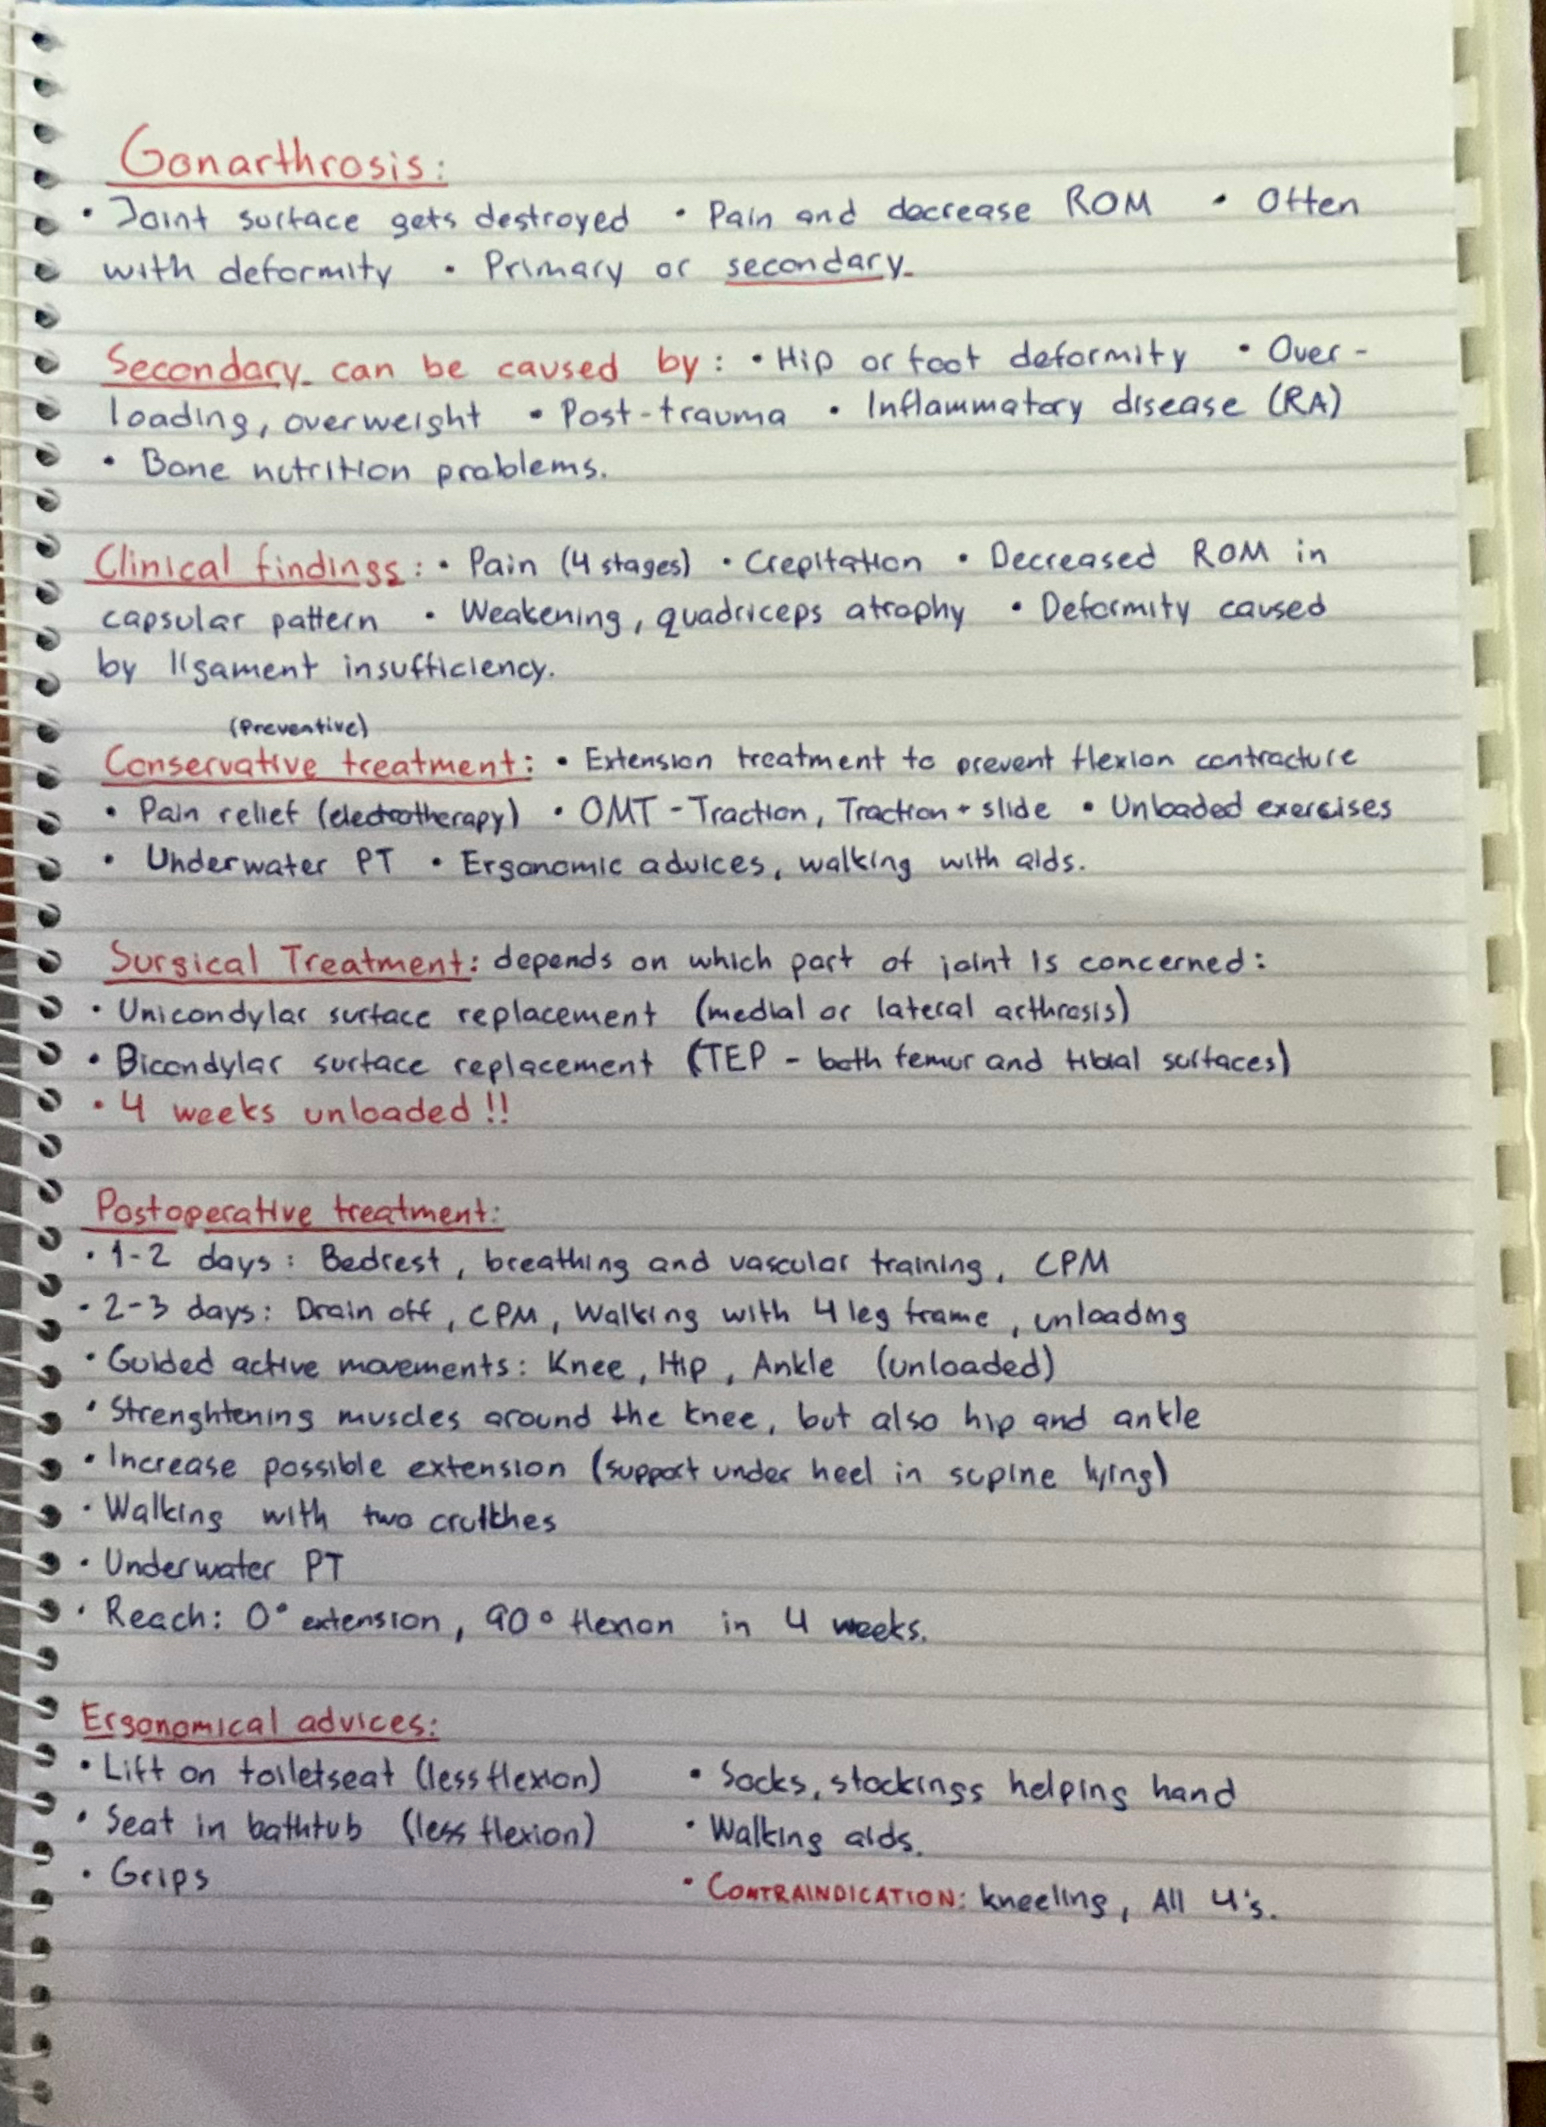 Gonarthrosis:
• Joint surface gets destroyed • Pain and decrease ROM • Often
with deformity • Primary or secondary.
Secondary can be caused by: • Hip or foot deformity • Over-
loading, overweight • Post-trauma • Inflammatory disease (RA)
• Bone nutrition problems.
Clinical findings: • Pain (4 stages) • Crepitation • Decreased ROM in
capsular pattern • Weakening, quadriceps atrophy • Deformity caused
by ligament insufficiency.
(Preventive)
Conservative treatment: • Extension treatment to prevent flexion contracture
• Pain relief (electrotherapy) • OMT - Traction, Traction + slide • Unloaded exercises
• Underwater PT • Ergonomic advices, walking with aids.
Surgical Treatment: depends on which part of joint is concerned:
• Unicondylar surface replacement (medial or lateral arthrosis)
• Bicondylar surface replacement (TEP - both femur and tibial surfaces)
• 4 weeks unloaded!!
Postoperative treatment:
• 1-2 days: Bedrest, breathing and vascular training, CPM
• 2-3 days: Drain off, CPM, Walking with 4 leg frame, unloading
• Guided active movements: Knee, Hip, Ankle (unloaded)
• Strenghtening muscles around the knee, but also hip and ankle
• Increase possible extension (support under heel in supine lying)
• Walking with two crutches
• Underwater PT
• Reach: 0° extension, 90° flexion in 4 weeks.
Ergonomical advices:
• Lift on toiletseat (less flexion) • Socks, stockings helping hand
• Seat in bathtub (less flexion) • Walking aids.
• Grips • CONTRAINDICATION: kneeling, All 4's.